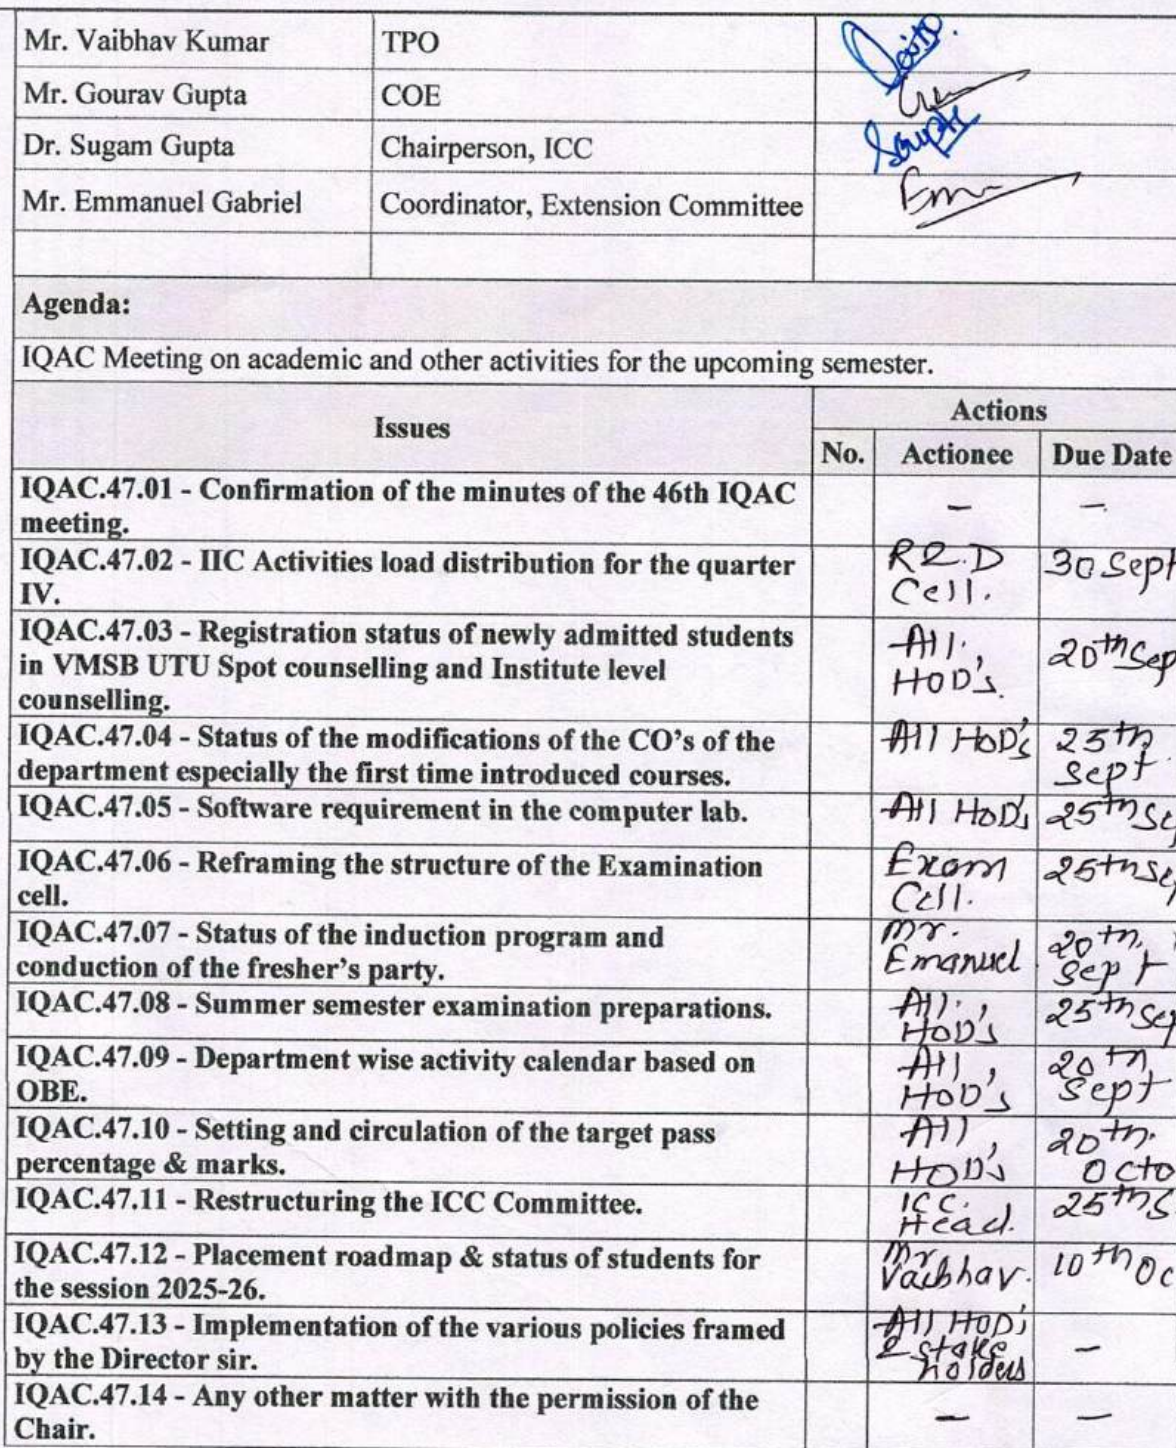 Mr. Vaibhav Kumar TPO
Mr. Gourav Gupta COE
Dr. Sugam Gupta Chairperson, ICC
Mr. Emmanuel Gabriel Coordinator, Extension Committee
Agenda:
IQAC Meeting on academic and other activities for the upcoming semester.
Issues
Actions
No. Actionee Due Date
IQAC.47.01 - Confirmation of the minutes of the 46th IQAC
meeting.
- -
IQAC.47.02 - IIC Activities load distribution for the quarter
IV.
R&D
Cell.
30 Sept
IQAC.47.03 - Registration status of newly admitted students
in VMSB UTU Spot counselling and Institute level
counselling.
All
HOD's
20th Sep
IQAC.47.04 - Status of the modifications of the CO's of the
department especially the first time introduced courses.
All HOD's
25th
Sept
IQAC.47.05 - Software requirement in the computer lab.
All HOD's 25th Se
IQAC.47.06 - Reframing the structure of the Examination
cell.
Exam
Cell.
25th Se
IQAC.47.07 - Status of the induction program and
conduction of the fresher's party.
Mr.
Emanuel
20th
Sept
IQAC.47.08 - Summer semester examination preparations.
All
HOD's
25th Sep
IQAC.47.09 - Department wise activity calendar based on
OBE.
All
HOD's
20th
Sept
IQAC.47.10 - Setting and circulation of the target pass
percentage & marks.
All
HOD's
20th
Octo
IQAC.47.11 - Restructuring the ICC Committee.
ICC.
Head.
25th S
IQAC.47.12 - Placement roadmap & status of students for
the session 2025-26.
Mr
Vaibhav.
10th Oc
IQAC.47.13 - Implementation of the various policies framed
by the Director sir.
All HOD's
& stake
holders
-
IQAC.47.14 - Any other matter with the permission of the
Chair.
- -